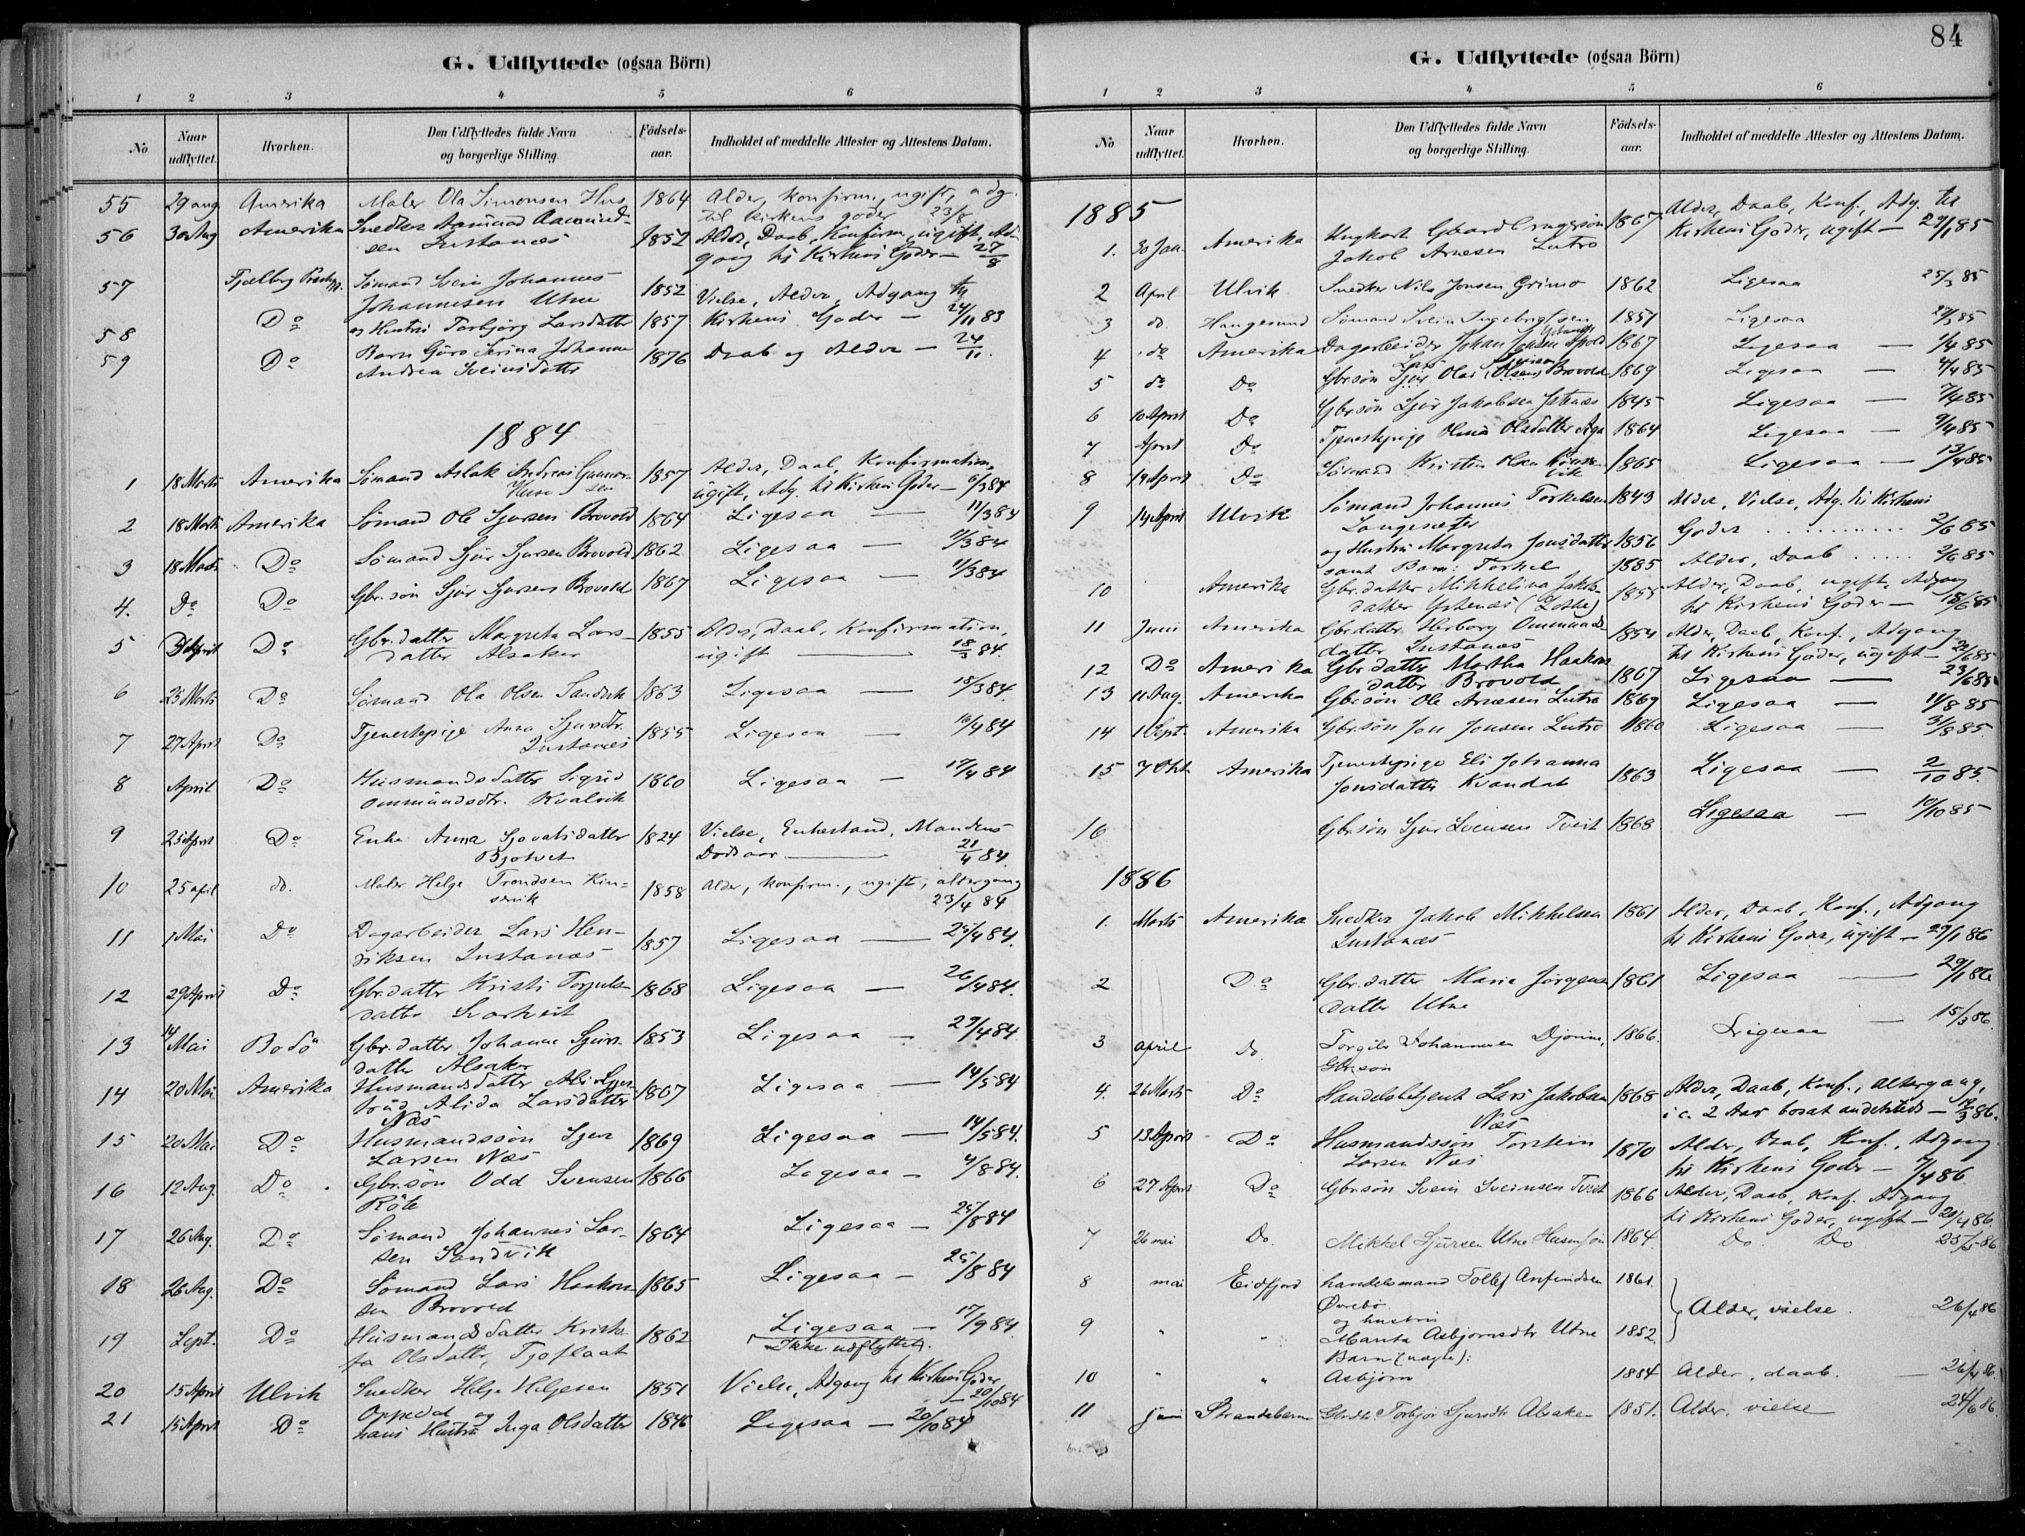 G. Udflyttede (ogsaa Börn)
1 2 3 4 5 6
No Naar udflyttet. Hvorhen. Den Udflyttedes fulde Navn og borgerlige Stilling. Födsels-aar. Indholdet af meddelte Attester og Attestens Datum.
55 29 aug Amerika Maler Ola Simonsen Hus 1864 Alder, konfirm., ugift, adg.
til kirkens goder 23/8
56 30 Aug Amerika Snedker Aamund Aamund-
sen Instanæs 1852 Alder, Daab, Konfirm, ugift, Ad-
gang til Kirkens Goder - 27/8
57 Fjelberg Sømand Svein Johannes
Johannesen Utne 1852 Vielse, Alder, Adgang til
58 Do og Hustru Torbjörg Larsdatter 1857 Kirkens Goder - 24/11 83
59 Do Barn Göro Serina Johanne 1876 Daab og Alder - 24/11.
Andrea Sveinsdatter
1884
1 18 Marts Amerika Sømand Aslak Andreas Gunnar-
sen Huse 1857 Alder, Daab, Konfirmation,
ugift, Adg. til Kirkens Goder - 6/3 84
2 18 Marts Amerika Sømand Ole Sjursen Brovold 1864 Ligesaa - 11/3 84
3 18 Marts Do Sømand Sjur Sjursen Brovold 1862 Ligesaa - 11/3 84
4. Do Do Gbr.søn Sjur Sjursen Brovold 1867 Ligesaa - 11/3 84
5 April Do Gbr.datter Margreta Lars-
datter Alsaker 1855 Alder, Daab, Konfirmation,
ugift - 18/3 84.
6 25 Marts Do Sømand Ola Olsen Sandvik 1863 Ligesaa - 18/3 84.
7 27 April Do Tjenestepige Anna Sjursdtr.
Instanæs 1855 Ligesaa - 16/4 84
8 April Do Husmandsdatter Sigrid
Ommundsdtr. Kvalvik 1860 Ligesaa - 19/4 84
9 25 April Do Enke Anna Sjovatsdatter 1824 Vielse, Enkestand, Mandens
Dødsaar - 21/4 84.
10 25 april do. Maler Helge Trondsen Kin-
servik 1858 Alder, konfirm., ugift, altergang
23/4 84
11 1 Mai Do Dagarbeider Lars Hen-
riksen Instanæs 1857 Ligesaa - 25/4 84.
12 29 April Do Gbr.datter Kristi Torjuls-
datter 1868 Ligesaa - 26/4 84.
13 14 Mai Bodö Gbr.datter Johanne Sjurs-
datter Alsaker 1853 Ligesaa - 29/4 84.
14 20 Mai Amerika Husmandsdatter
Alida Larsdatter 1867 Ligesaa - 14/5 84
Næs
15 20 Mai Do Husmandssön Sjur 1869 Ligesaa - 14/5 84.
Larsen Næs
16 12 Aug. Do Gbr.søn Odd Svensen 1866 Ligesaa - 4/8 84.
Röte
17 26 Aug. Do Sømand Johannes Lar-
sen Sandvik 1864 Ligesaa - 25/8 84
18 26 Aug. Do Sømand Lars Haakon-
sen Brovold 1865 Ligesaa - 25/8 84
19 Sept. Do Husmandsdatter Kristi-
na Olsdatter, Tjoflaat 1862 Ligesaa - 17/9 84.
Ikke udflyttet.
20 15 April Ulvik Snedker Helje Heljesen
Oppedal og 1851 Vielse, Adgang til Kirkens Goder
- 20/10 84
21 15 April Do hans Hustru Inga Olsdatter 1846 Ligesaa - 20/10 84
84
G. Udflyttede (ogsaa Börn)
1 2 3 4 5 6
No Naar udflyttet. Hvorhen. Den Udflyttedes fulde Navn og borgerlige Stilling. Födsels-aar. Indholdet af meddelte Attester og Attestens Datum.
1885
1. 30 Jan. Amerika Ungkarl
Jakob Arnesen Lutro 1867 Alder, Daab, Konf., Adg. til
Kirkens Goder, ugift - 29/1 85
2 April Ulvik Snedker Nils Jonsen Grimo 1862 Ligesaa 25/3 85
3 do. Haugesund Sømand Svein Ingebrigtsen 1857 Ligesaa 27/3 85
4 do Amerika Dagarbeider Johan 1867 Ligesaa - 1/4 85
5 do Do Gbr.søn Lars Olai Brovold 1869 Ligesaa - 4/4 85
6 10 April Do Gbr.søn Sjur Jakobsen 1845 Ligesaa - 7/4 85
7 April Do Tjenestepige Olina Olsdatter Aga 1864 Ligesaa - 9/4 85
8 14 April Do Sømand Kristen Olsen Kinser-
vik 1865 Ligesaa - 13/4 85
9 14 April Ulvik Sømand Johannes Torkelsen
Langesæter 1843 Alder, Vielse, Adg. til Kirkens
Goder 2/6 85
og Hustru Margreta Jonsdatter 1856
samt Barn: Torkel 1885 Alder, Daab 2/6 85
10 Amerika Gbr.datter Mikkelina Jakobs-
datter 1855 Alder, Daab, ugift, Adgang
til Kirkens Goder - 18/6 85
11 Juni Amerika Gbr.datter Herborg Ommunds-
datter Instanæs 1854 Alder, Daab, Konf., Adgang
til Kirkens Goder, ugift - 22/6 85
12 Do Amerika Gbr.datter Martha Haakons-
datter Brovold 1867 Ligesaa - 23/6 85
13 11 Aug. Amerika Gbr.søn Ole Arnesen Lutro 1869 Ligesaa - 11/8 85
14 1 Sept. Amerika Gbr.søn Jon Jonsen Lutro 1860 Ligesaa - 31/8 85
15 7 Okt Amerika Tjenestepige Eli Johanna
Jonsdatter Kvandal 1863 Ligesaa - 2/10 85.
16 Gbr.søn Sjur Svensen Tveit 1868 Ligesaa - 10/10 85
1886
1. Marts Amerika Snedker Jakob Mikkelsen
Instanæs 1861 Alder, Daab, Konf., Adgang
til Kirkens Goder, ugift - 29/1 86
2 Do Gbr.datter Maria Jørgens-
datter Utne 1861 Ligesaa - 29/1 86
3 april do. Torgils Johannesen Djönne,
Gbr.søn 1866. Ligesaa - 15/3 86.
4. 26 Marts Do Handelsbetjent Lars Jakobsen
Næs 1868 Alder, Daab, Konf., Altergang,
i c. 2 Aar bosat andetsteds - 19/3 86.
5 13 April Do Husmandssøn Torstein
Larsen Næs 1870 Alder, Daab, Konf., Adgang
til Kirkens Goder - 7/4 86
6 27 April Do Gbr.søn Svein Sveinsen Tveit 1866 Alder, Daab, Konf. Adgang
til Kirkens Goder, ugift - 20/4 86.
7 26 mai Do. Mikkel Sjursen Utne 1864 Do. Do 25/5 86
8 mai Eidfjord handelsmand Tollef Anfindsen
Øvrebø 1861.
og hustru
9 " " Marita Asbjørnsdtr Utne 1852. Alder, vielse. 26/4 86
Barn (uægte):
10 " " Asbjørn 1884 Alder, daab. - 26/4 86.
11 juni Strandebarm Gbrdtr. Torbjør Sjursdtr Alsaker 1851. Alder, vielse 24/6 86